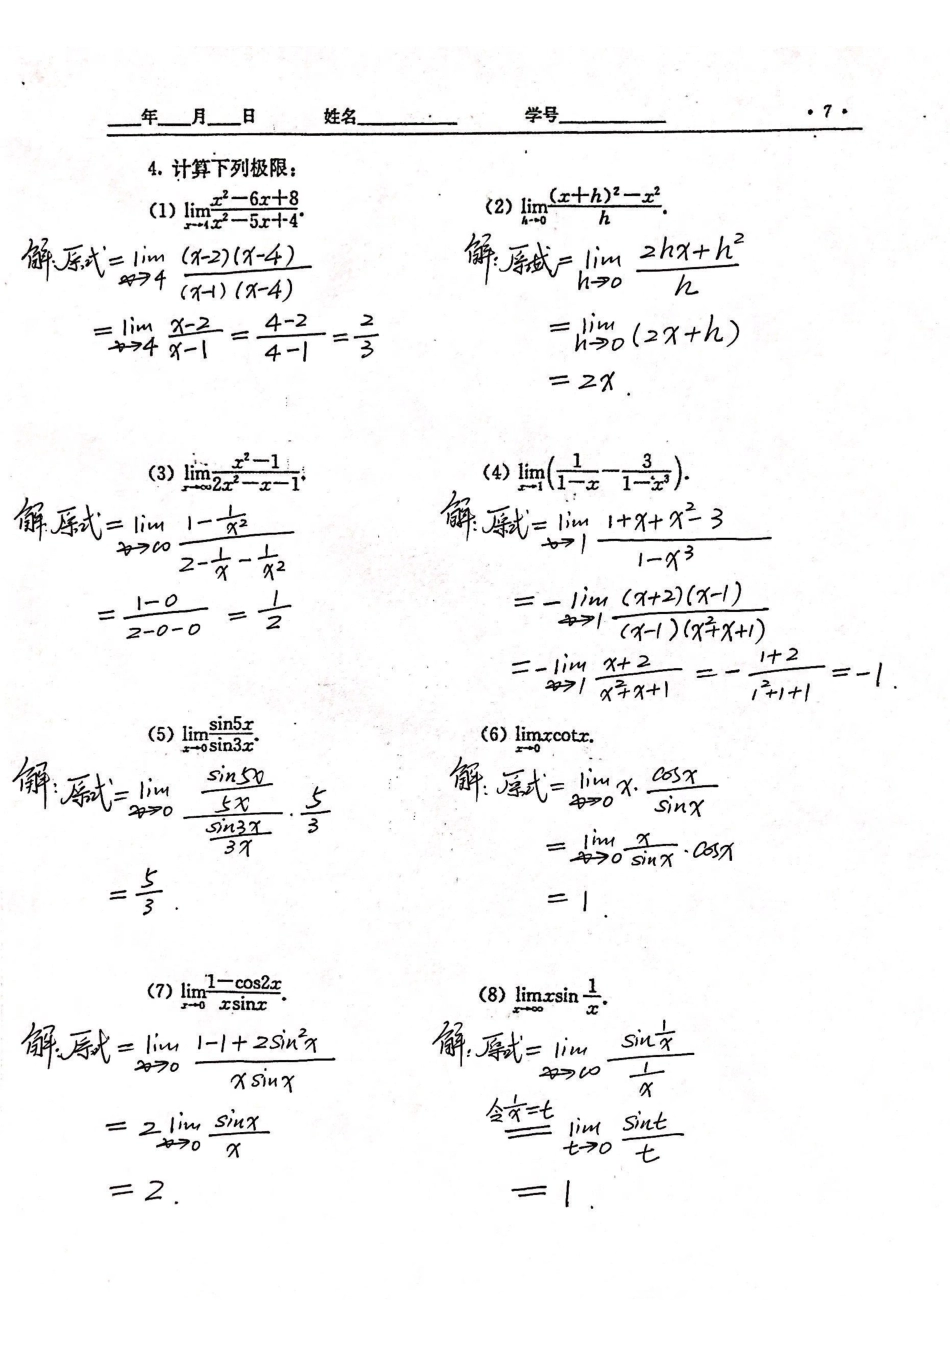 ___年___月___日 姓名______ 学号______ ·7·
4. 计算下列极限:
(1) lim_{x→4} (x²-6x+8)/(x²-5x+4).
解:原式= lim_{x→4} (x-2)(x-4)/(x-1)(x-4)
= lim_{x→4} (x-2)/(x-1) = (4-2)/(4-1) = 2/3
(2) lim_{h→0} ((x+h)²-x²)/h.
解:原式= lim_{h→0} (2hx+h²)/h
= lim_{h→0} (2x+h)
= 2x.
(3) lim_{x→∞} (x²-1)/(2x²-x-1).
解:原式= lim_{x→∞} (1-1/x²)/(2-1/x-1/x²)
= (1-0)/(2-0-0) = 1/2
(4) lim_{x→1} (1/(1-x) - 3/(1-x³)).
解:原式= lim_{x→1} (1+x+x²-3)/(1-x³)
= -lim_{x→1} (x+2)(x-1)/(x-1)(x²+x+1)
= -lim_{x→1} (x+2)/(x²+x+1) = -(1+2)/(1²+1+1) = -1.
(5) lim_{x→0} sin5x/sin3x.
解:原式= lim_{x→0} (sin5x/5x)/(sin3x/3x) · 5/3
= 5/3.
(6) lim_{x→0} xcotx.
解:原式= lim_{x→0} x· cosx/sinx
= lim_{x→0} x/sinx · cosx
= 1.
(7) lim_{x→0} (1-cos2x)/(xsinx).
解:原式= lim_{x→0} (1-1+2sin²x)/(xsinx)
= 2 lim_{x→0} sinx/x
= 2.
(8) lim_{x→∞} xsin 1/x.
解:原式= lim_{x→∞} (sin 1/x)/(1/x)
令1/x=t = lim_{t→0} sint/t
= 1.